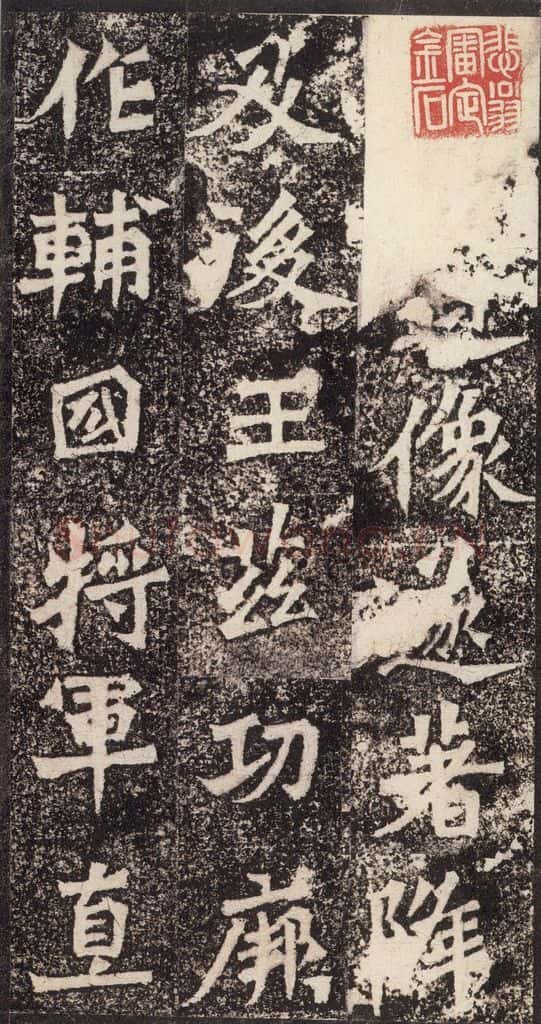 悲翁
審定
金石
像遂著降
及後王茲功厥
作輔國將軍直